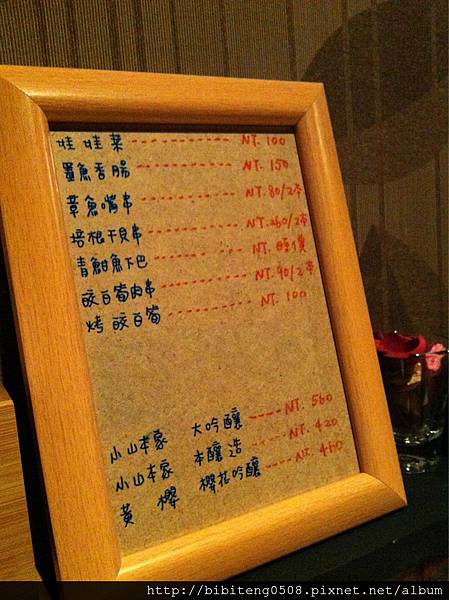 娃娃菜 ------------ NT. 100
墨魚香腸 ------------ NT. 150
章魚嘴串 ------------ NT. 80/2串
培根干貝串 ------------ NT. 260/2串
青魽魚下巴 ------------ NT. 時價
皎白筍肉串 ------------ NT. 90/2串
烤皎白筍 ------------ NT. 100
小山本家 大吟釀 ----- NT. 560
小山本家 本釀造 ----- NT. 420
黃櫻 櫻花吟釀 ----- NT. 460
http://bibiteng0508.pixnet.net/album